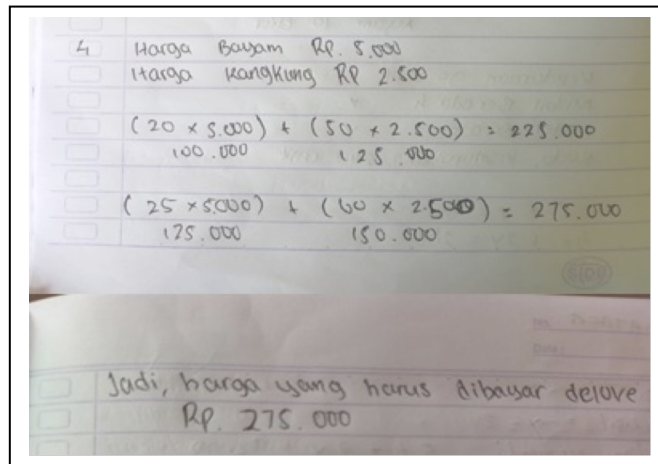 4 Harga Bayam Rp. 5.000
Harga Kangkung Rp 2.500
(20 × 5.000) + (50 × 2.500) = 225.000
100.000 125.000
(25 × 5.000) + (60 × 2.500) = 275.000
125.000 150.000
SIDU
Jadi, harga yang harus dibayar delove
Rp. 275.000